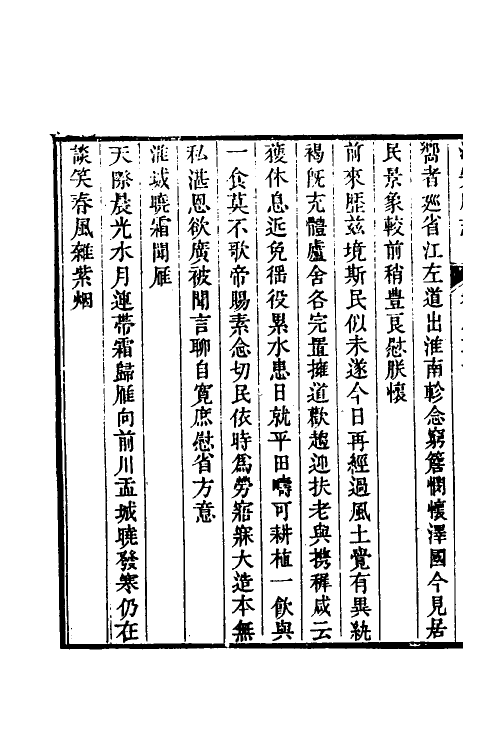 嚮者廵省江左道出淮南軫念窮簷憫懷澤國今見居
民景象較前稍豊良慰朕懷
前來歴茲境斯民似未遂今日再經過風土覺有異紈
褐旣充體廬舍各完置擁道歡趨迎扶老與攜稺咸云
獲休息近免徭役累水患日就平田疇可耕植一飲與
一食莫不歌帝賜素念切民依時爲勞寤寐大造本無
私湛恩欲廣被聞言聊自寛庶慰省方意
淮城曉霜聞雁
天際晨光水月連帯霜歸雁向前川盂城曉發寒仍在
談笑春風雜紫烟